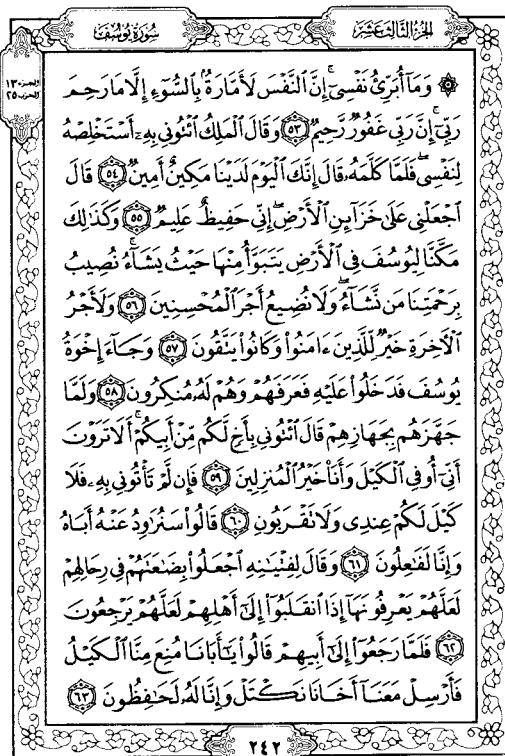 الجزء الثالث عشر
سُورَةُ يُوسُفَ
الجزء ١٣
الحزب ٢٥
۞ وَمَآ أُبَرِّئُ نَفْسِىٓ ۚ إِنَّ ٱلنَّفْسَ لَأَمَّارَةٌۢ بِٱلسُّوٓءِ إِلَّا مَا رَحِمَ
رَبِّىٓ ۚ إِنَّ رَبِّى غَفُورٌ رَّحِيمٌ ٥٣ وَقَالَ ٱلْمَلِكُ ٱئْتُونِى بِهِۦٓ أَسْتَخْلِصْهُ
لِنَفْسِى ۖ فَلَمَّا كَلَّمَهُۥ قَالَ إِنَّكَ ٱلْيَوْمَ لَدَيْنَا مَكِينٌ أَمِينٌ ٥٤ قَالَ
ٱجْعَلْنِى عَلَىٰ خَزَآئِنِ ٱلْأَرْضِ ۖ إِنِّى حَفِيظٌ عَلِيمٌ ٥٥ وَكَذَٰلِكَ
مَكَّنَّا لِيُوسُفَ فِى ٱلْأَرْضِ يَتَبَوَّأُ مِنْهَا حَيْثُ يَشَآءُ ۚ نُصِيبُ
بِرَحْمَتِنَا مَن نَّشَآءُ ۖ وَلَا نُضِيعُ أَجْرَ ٱلْمُحْسِنِينَ ٥٦ وَلَأَجْرُ
ٱلْءَاخِرَةِ خَيْرٌ لِّلَّذِينَ ءَامَنُوا۟ وَكَانُوا۟ يَتَّقُونَ ٥٧ وَجَآءَ إِخْوَةُ
يُوسُفَ فَدَخَلُوا۟ عَلَيْهِ فَعَرَفَهُمْ وَهُمْ لَهُۥ مُنكِرُونَ ٥٨ وَلَمَّا
جَهَّزَهُم بِجَهَازِهِمْ قَالَ ٱئْتُونِى بِأَخٍ لَّكُم مِّنْ أَبِيكُمْ ۚ أَلَا تَرَوْنَ
أَنِّىٓ أُوفِى ٱلْكَيْلَ وَأَنَا۠ خَيْرُ ٱلْمُنزِلِينَ ٥٩ فَإِن لَّمْ تَأْتُونِى بِهِۦ فَلَا
كَيْلَ لَكُمْ عِندِى وَلَا تَقْرَبُونِ ٦٠ قَالُوا۟ سَنُرَٰوِدُ عَنْهُ أَبَاهُ
وَإِنَّا لَفَٰعِلُونَ ٦١ وَقَالَ لِفِتْيَٰنِهِ ٱجْعَلُوا۟ بِضَٰعَتَهُمْ فِى رِحَالِهِمْ
لَعَلَّهُمْ يَعْرِفُونَهَآ إِذَا ٱنقَلَبُوٓا۟ إِلَىٰٓ أَهْلِهِمْ لَعَلَّهُمْ يَرْجِعُونَ
٦٢ فَلَمَّا رَجَعُوٓا۟ إِلَىٰٓ أَبِيهِمْ قَالُوا۟ يَٰٓأَبَانَا مُنِعَ مِنَّا ٱلْكَيْلُ
فَأَرْسِلْ مَعَنَآ أَخَانَا نَكْتَلْ وَإِنَّا لَهُۥ لَحَٰفِظُونَ ٦٣
٢٤٢